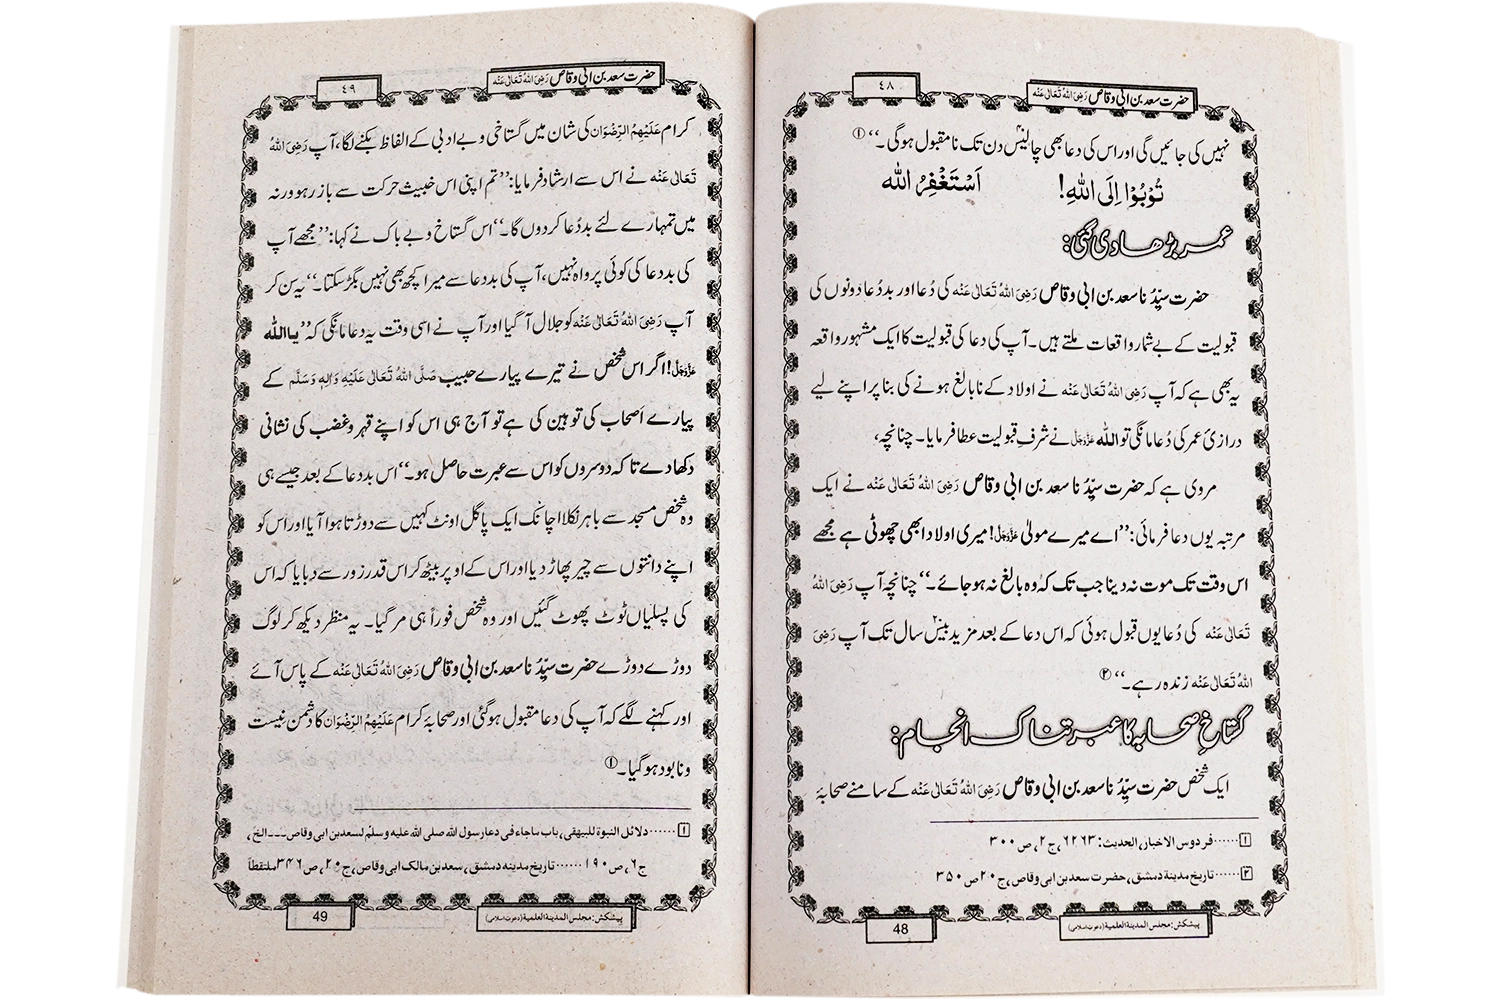 حضرت سعد بن ابی وقاص رَضِیَ اللہُ تَعَالٰی عَنْہ
٤٨
نہیں کی جائیں گی اور اس کی دعا بھی چالیس۴۰ دن تک نا مقبول ہوگی۔‘‘ (۱)
تُوْبُوْا اِلَی اللہِ! اَسْتَغْفِرُ اللہ
عمر بڑھا دی گئی:
حضرت سیِّدُ نا سعد بن ابی وقاص رَضِیَ اللہُ تَعَالٰی عَنْہ کی دُعا اور بددُعا دونوں کی
قبولیت کے بے شمار واقعات ملتے ہیں۔ آپ کی دعا کی قبولیت کا ایک مشہور واقعہ
یہ بھی ہے کہ آپ رَضِیَ اللہُ تَعَالٰی عَنْہ نے اولاد کے نابالغ ہونے کی بنا پر اپنے لیے
درازیٔ عمر کی دُعا مانگی تو اللہ عَزَّوَجَلَّ نے شرفِ قبولیت عطا فرمایا۔ چنانچہ،
مروی ہے کہ حضرت سیِّدُ نا سعد بن ابی وقاص رَضِیَ اللہُ تَعَالٰی عَنْہ نے ایک
مرتبہ یوں دعا فرمائی: ’’اے میرے مولیٰ عَزَّوَجَلَّ! میری اولاد ابھی چھوٹی ہے مجھے
اس وقت تک موت نہ دینا جب تک کہ وہ بالغ نہ ہو جائے۔‘‘ چنانچہ آپ رَضِیَ اللہُ
تَعَالٰی عَنْہ کی دُعا یوں قبول ہوئی کہ اس دعا کے بعد مزید بیس۲۰ سال تک آپ رَضِیَ
اللہُ تَعَالٰی عَنْہ زندہ رہے۔‘‘ (۲)
گستاخِ صحابہ کا عبرتناک انجام:
ایک شخص حضرت سیِّدُ نا سعد بن ابی وقاص رَضِیَ اللہُ تَعَالٰی عَنْہ کے سامنے صحابۂ
۱……فردوس الاخبار، الحدیث: ۶۲۶۳، ج۲، ص۳۰۰
۲……تاریخ مدینة دمشق، حضرت سعد بن ابی وقاص، ج۲۰ ص۳۵۰
پیشکش: مجلس المدینة العلمیة (دعوتِ اسلامی)
48
حضرت سعد بن ابی وقاص رَضِیَ اللہُ تَعَالٰی عَنْہ
٤٩
کرام عَلَیْہِمُ الرِّضْوَان کی شان میں گستاخی و بے ادبی کے الفاظ بکنے لگا، آپ رَضِیَ اللہُ
تَعَالٰی عَنْہ نے اس سے ارشاد فرمایا: ’’تم اپنی اس خبیث حرکت سے باز رہو ورنہ
میں تمہارے لئے بددُعا کر دوں گا۔‘‘ اس گستاخ و بے باک نے کہا: ’’مجھے آپ
کی بددعا کی کوئی پرواہ نہیں، آپ کی بددعا سے میرا کچھ بھی نہیں بگڑ سکتا۔‘‘ یہ سن کر
آپ رَضِیَ اللہُ تَعَالٰی عَنْہ کو جلال آ گیا اور آپ نے اسی وقت یہ دعا مانگی کہ ’’یااللہ
عَزَّوَجَلَّ! اگر اس شخص نے تیرے پیارے حبیب صَلَّی اللہُ تَعَالٰی عَلَیْہِ وَاٰلِہٖ وَسَلَّم کے
پیارے اصحاب کی توہین کی ہے تو آج ہی اس کو اپنے قہر و غضب کی نشانی
دکھا دے تا کہ دوسروں کو اس سے عبرت حاصل ہو۔‘‘ اس بددعا کے بعد جیسے ہی
وہ شخص مسجد سے باہر نکلا اچانک ایک پاگل اونٹ کہیں سے دوڑتا ہوا آیا اور اس کو
اپنے دانتوں سے چیر پھاڑ دیا اور اس کے اوپر بیٹھ کر اس قدر زور سے دبایا کہ اس
کی پسلیاں ٹوٹ پھوٹ گئیں اور وہ شخص فوراً ہی مر گیا۔ یہ منظر دیکھ کر لوگ
دوڑے دوڑے حضرت سیِّدُ نا سعد بن ابی وقاص رَضِیَ اللہُ تَعَالٰی عَنْہ کے پاس آئے
اور کہنے لگے کہ آپ کی دعا مقبول ہو گئی اور صحابۂ کرام عَلَیْہِمُ الرِّضْوَان کا دشمن نیست
و نابود ہو گیا۔ (۱)
۱……دلائل النبوة للبیھقی، باب ماجاء فی دعاء رسول اللہ صلی اللہ علیہ وسلم لسعد بن ابی وقاص۔۔۔الخ،
ج۶، ص۱۹۰……تاریخ مدینہ دمشق، سعد بن مالک ابی وقاص، ج۲۰، ص۳۴۶ ملتقطاً
پیشکش: مجلس المدینة العلمیة (دعوتِ اسلامی)
49